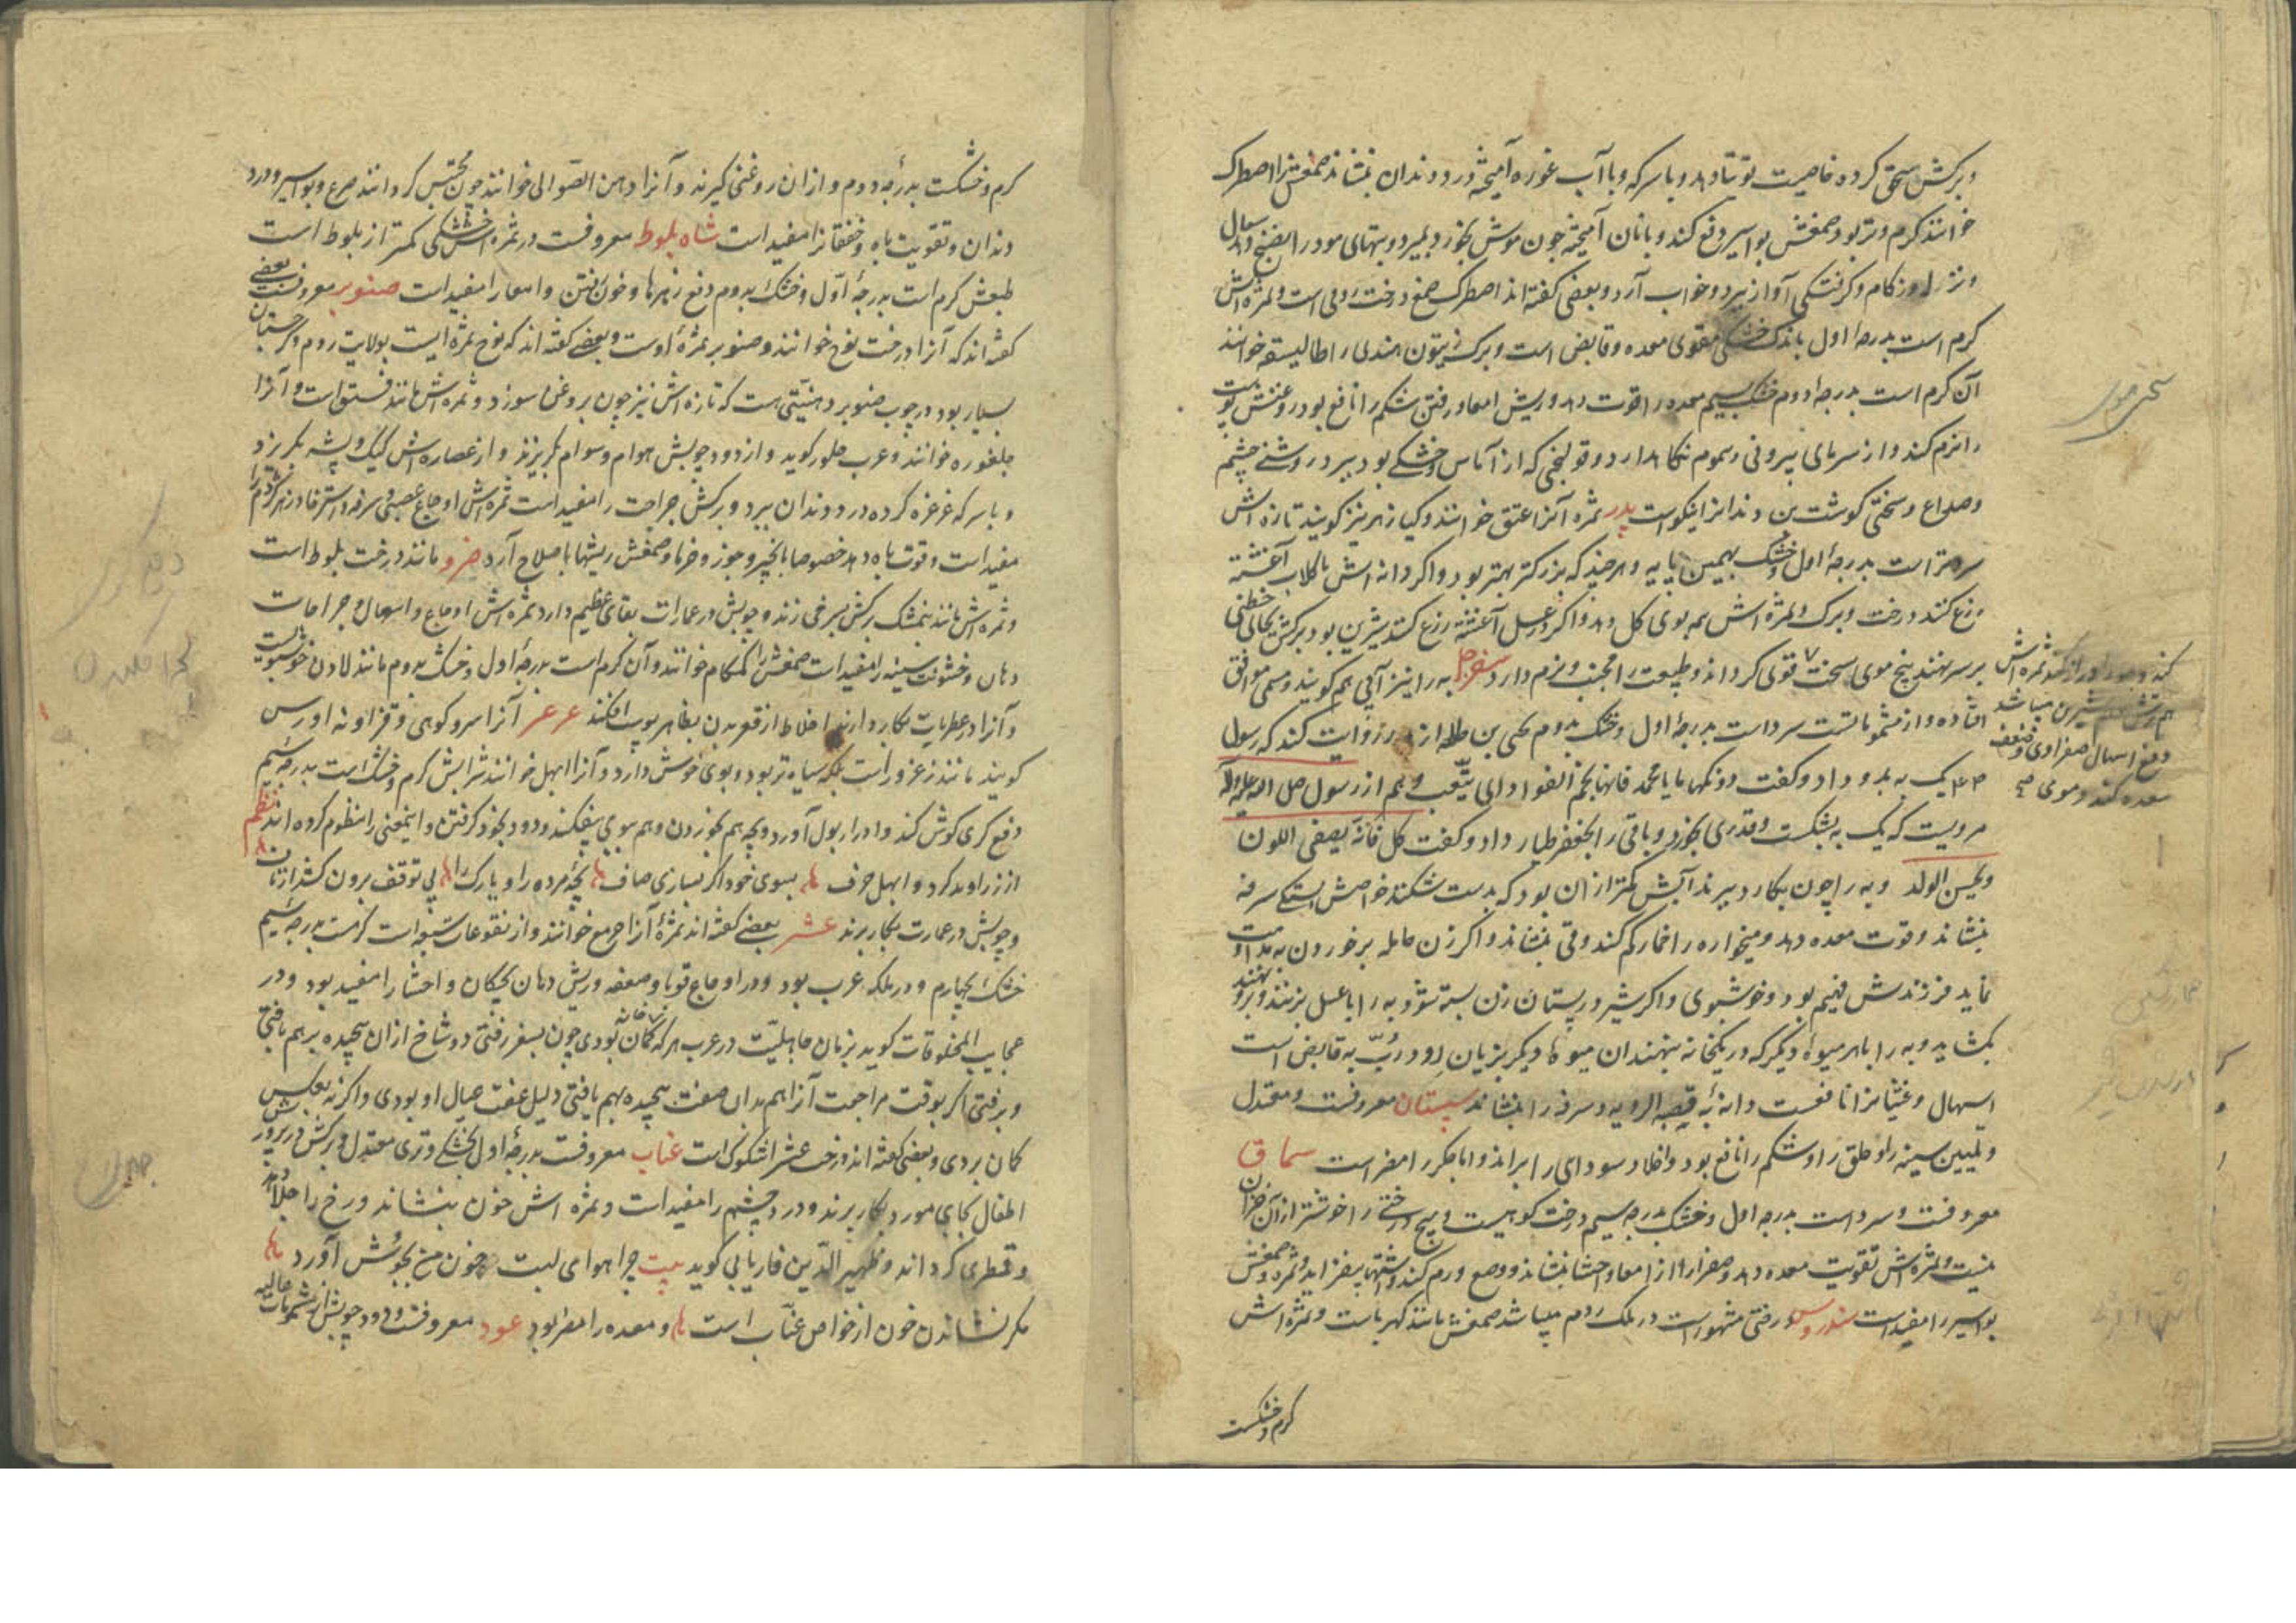 وبرکش سحق کرده خاصیت توتیا دهد و با سرکه و با آب غوره آمیخته درد دندان بنشاند صمغش را اصطرک
خوانند کرم و تر بود صمغش بواسیر دفع کند و با نان آمیخته چون موش بخورد بمیرد و بتهای مو در انضج دهد سعال
و نزله و زکام و کرفتکی آواز ببرد و خواب آرد و بعضی کفته اند اصطرک صمغ درخت رومی است و ثمره اش
کرم است بدرجهٔ اول باندک خشکی مقوی معده و قابض است و برک زیتون هندی را طالیسفر خوانند
آن کرم است بدرجهٔ دوم خشک بسیم معده را قوت دهد و ریش امعا و رفتن شکم را نافع بود روغنش پوست
را نرم کند و از سرمای بیرونی و سموم نکاه دارد و قولنجی که از آماس و خشکی بود ببرد روشنی چشم
و صداع و سختی کوشت بن دندانرا نیکو است ثمره آنرا عتق خوانند و کیا زهر نیز کویند تازه اش
سردتر است بدرجهٔ اول و خشک بهمین پایه و هر چند که بزرکتر بهتر بود و اکر دانه اش با کلاب آغشته
زرع کنند درخت و برک و ثمره اش همه بوی کل دهد و اکر در عسل آغشته زرع کنند شیرین بود برکش بجای خطمی
بر سر نهند بیخ موی سخت و قوی کرداند و طبیعت را مجیب و نرم دارد سفرجل به را نیز آبی هم کویند و مسمی موافق
افتاده و از مشمومات است سرد است بدرجهٔ اول و خشک بدوم یحیی بن طلحه از پدر روایت کند که رسول
ص یک به بدو داد و کفت دونکها یا با محمد فانها تجم الفواد و ابی هم از رسول صلی الله علیه و آله
مرویست که یک به بشکست و قدری بخورد و باقی را بجعفر طیار داد و کفت کل فانه یصفی اللون
و یحسن الولد و به را چون بکارد ببرند آبش کمتر از آن بود که بدست شکنند خواصش تشنکی و سرفه
بنشاند و قوت معده دهد و میخواره را خمار کم کند و قی بنشاند و اکر زن حامله بر خوردن به مداومت
نماید فرزندش فهیم بود و خوشبوی و اکر شیر در پستان زن بسته شود به را با عسل بپزند و برو نهند
بکشاید و به را با هر میوهٔ دیکر که در یکخانه بنهند آن میوهٔ دیکر بزیان رود ربّ به قابض است
اسهال و غثیانرا نافعست دانهٔ به قصبه الریه و سرفه را بنشاند سپستان معروفست و معتدل
و تلیین سینه را و حلق را و شکم را نافع بود و اخلاط سودای را براند و اما جکر را مضر است سماق
معروفست و سرد است بدرجه اول و خشک بدرجه سیم درخت کوهیست و هیچ درختی را خوشتر از آن خزان
نیست و ثمره اش تقویت معده دهد و صفرا را از امعا و احشا بنشاند و وجع و ورم کند و اشتها بیفزاید و ثمره و صمغش
بواسیر را مفید است سندروس درختی مشهور است در ملک روم میباشد صمغش مانند کهرباست و ثمره اش
کرم و خشکست
کند و موی را دراز کند ثمره اش
هم ترش و هم شیرین میباشد
دفع اسهال صفراوی و ضعف
معده کند و موی
کرم و خشکست بدرجهٔ دوم و از آن روغنی کیرند و آنرا دهن الصوالی خوانند چون محتبس کردانند صرع و بواسیر و درد
دندان و تقویت باه و خفقانرا مفید است شاه بلوط معروفست در ثمره اش خشکی کمتر از بلوط است
طبعش کرم است بدرجهٔ اول و خشک بدوم دفع زهرها و خون رفتن و امعا را مفید است صنوبر معروفست بعضی
کفته اند که آنرا درخت نوج خوانند و صنوبر ثمرهٔ اوست و بعضی کفته اند که نوج ثمره ایست بولایت روم و کرجستان
بسیار بود در چوب صنوبر دهنیتی هست که تازه اش نیز چون بروغن سوزد و ثمره اش مانند فستق است و آنرا
جلغوزه خوانند و عرب جلوز کوید و از دود چوبش هوام و سوام بکریزند و از عصاره اش کیک و پشه بکریزد
و با سرکه غرغره کرده درد دندان ببرد و برکش جراحت را مفید است ثمره اش اوجاع عصبی و سرفه و استرخا و زهر کژدم را
مفید است و قوت باه دهد خصوصا با انجیر و جوز و خرما و صمغش ریشها با صلاح آرد ضرو مانند درخت بلوط است
و ثمره اش مانند بنمشک برکش بسرخی زند و چوبش در عمارات بقای عظیم دارد ثمره اش اوجاع و اسهال و جراحات
دهان و خشونت سینه را مفید است صمغش را کمکام خوانند و آن کرم است بدرجهٔ اول و خشک بدوم مانند لادن خوشبویست
و آنرا در عطریات بکار دارند اخلاط از قعر بدن بظاهر پوست افکند عرعر آنرا سرو کوهی و قزاونه اورس
کویند مانند زعرور است بلکه سیاه تر بود و بوی خوش دارد و آنرا ابهل خوانند شرابش کرم و خشک است بدرجهٔ سیم
دفع کری کوش کند و ادرار بول آورد و بچه هم بخوردن و هم ببوی بیفکند و دود بخود کرفتن و اینمعنی را منظوم کرده اند نظم
از زراوند کرد و ابهل حرف بسوی خود اکر بسازی صاف بچهٔ مرده را و یا رک را بی توقف برون کشد از ناف
و چوبش در عمارت بکار برند عشر بعضی کفته اند ثمرهٔ آنرا صمع خوانند و از نقوعات سبعه است کرمست بدرجه سیم
خشک بچهارم و در بلکه عرب بود و در اوجاع قوبا و صعفه و ریش دهان بچکان و احشا را مفید بود و در
عجایب المخلوقات کوید بزمان جاهلیت در عرب هر که کمان خانه بودی چون بسفر رفتی دو شاخ از آن پیچیده بر هم بافتی
و برفتی اکر بوقت مراجعت آنرا هم بدان صفت پیچیده بهم یافتی دلیل عفت عیال او بودی و اکر نه بعکس
کمان بردی و بعضی کفته اند درخت عشر اشکوک است عناب معروفست بدرجهٔ اول بخشکی و تری معتدل و برکش در پرورش
اطفال بجای مورد بکار برند و درد چشم را مفید است و ثمره اش خون بنشاند و رخ را جلا دهد
و قطری کرداند و ظهیر الدین فاریابی کوید بیت چرا هوای لبت خون من بجوش آورد
مکر نشاندن خون از خواص عناب است و معده را مضر بود عود معروفست و دود چوبش از مشمومات عالیه